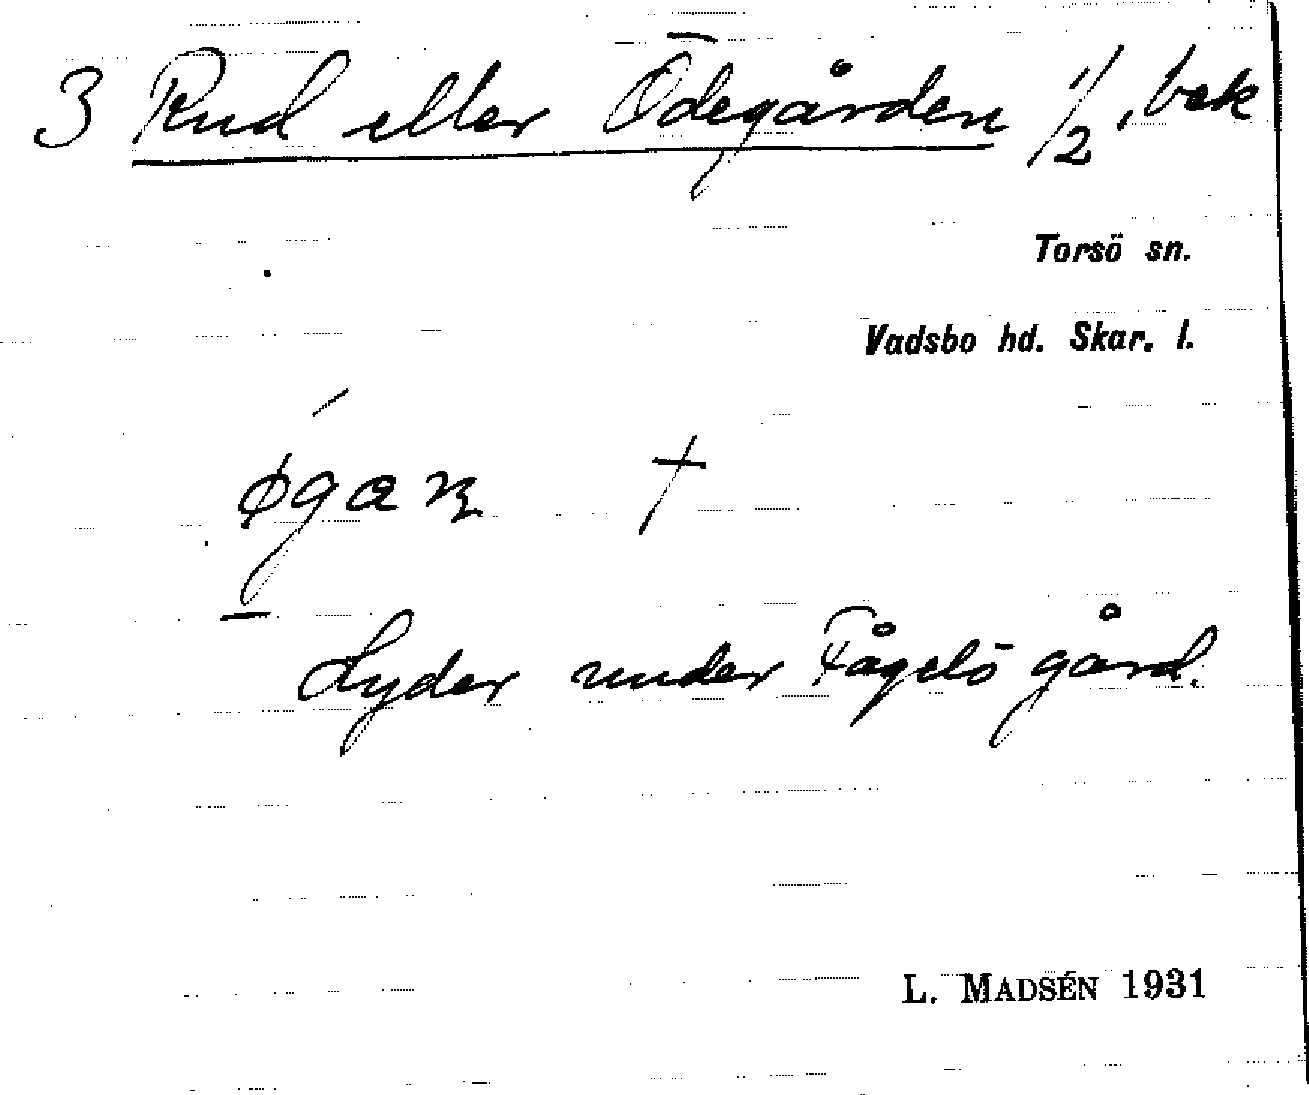 3 Rud eller Ödegården 1/2, bek
Torsö sn.
Vadsbo hd. Skar. l.
†
Lyder under Fågelö gård.
L. MADSÉN 1931